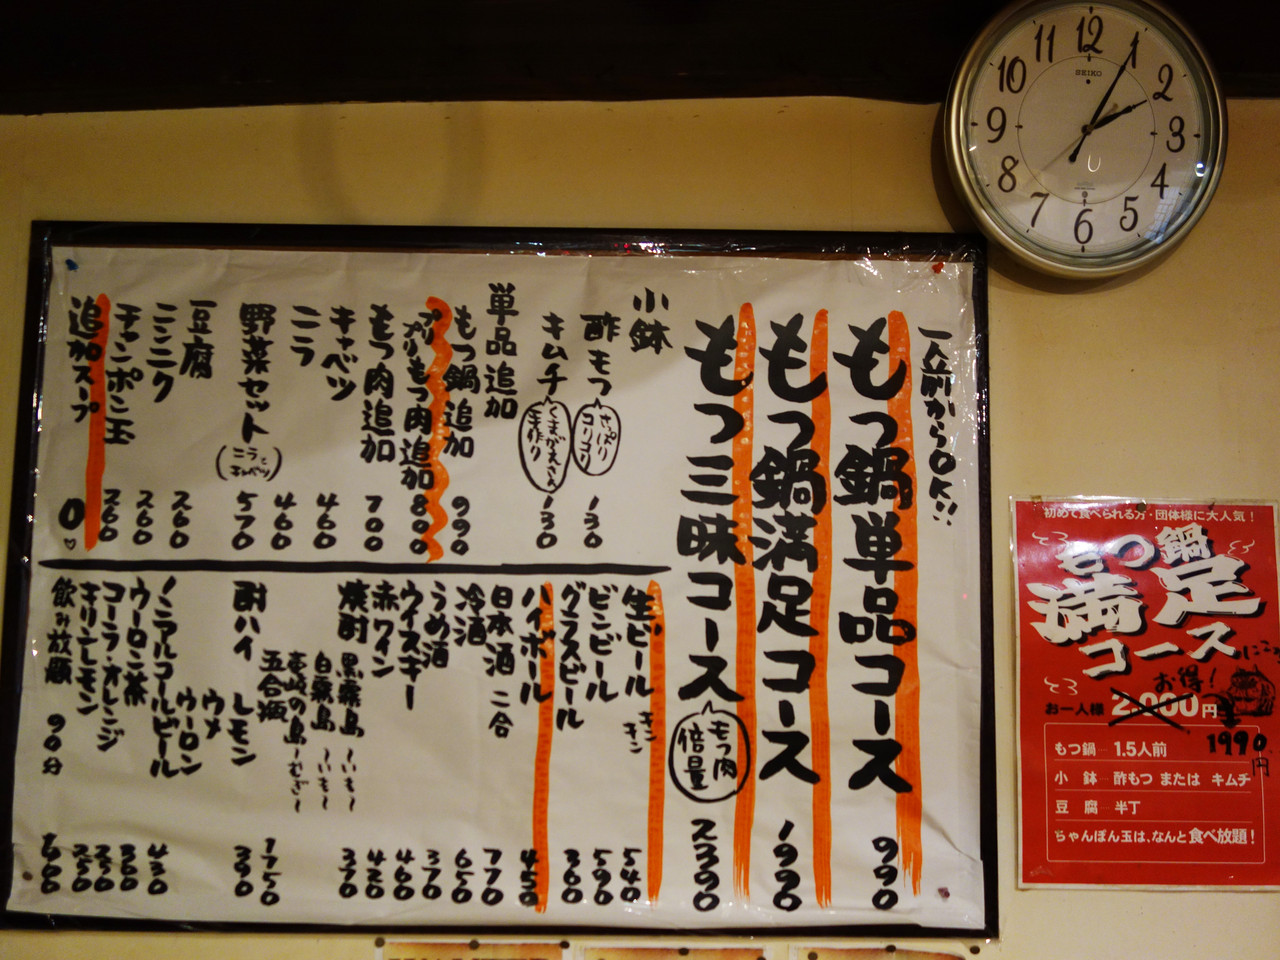 一人前からOK!!
もつ鍋単品コース 990
もつ鍋満足コース 1990
もつ三昧コース もつ肉倍量 2390
小鉢
酢もつ さっぱりコリコリ 130
キムチ くまがえさん手作り 130
単品追加
もつ鍋追加 990
プリプリもつ肉追加 800
もつ肉追加 700
キャベツ 460
ニラ 460
野菜セット (ニラとキャベツ) 570
豆腐 260
ニンニク 260
チャンポン玉 260
追加スープ 0♡
生ビール キンキン 540
ビンビール 590
グラスビール 360
ハイボール 450
日本酒 二合 770
冷酒 650
うめ酒 370
ウイスキー 460
赤ワイン 420
焼酎 黒霧島〜いも〜 370
白霧島〜いも〜
壱岐の島〜むぎ〜
五合瓶 1750
酎ハイ レモン 390
ウメ
ウーロン
ノンアルコールビール 430
ウーロン茶
コーラ・オレンジ
キリンレモン
飲み放題 90分
12
1
2
3
4
5
6
7
8
9
10
11
SEIKO
初めて食べられる方・団体様に大人気!
もつ鍋
満足
コース
お得!
お一人様 2,000円
1990円
もつ鍋 1.5人前
小鉢 酢もつ または キムチ
豆腐 半丁
ちゃんぽん玉は、なんと食べ放題!